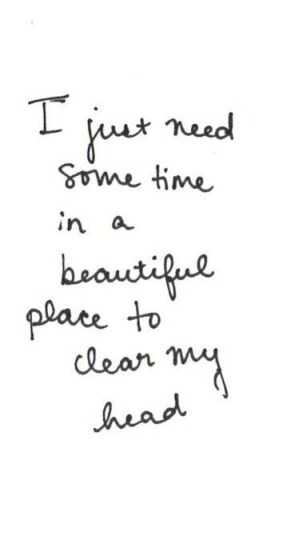 I just need
some time
in a
beautiful
place to
clear my
head